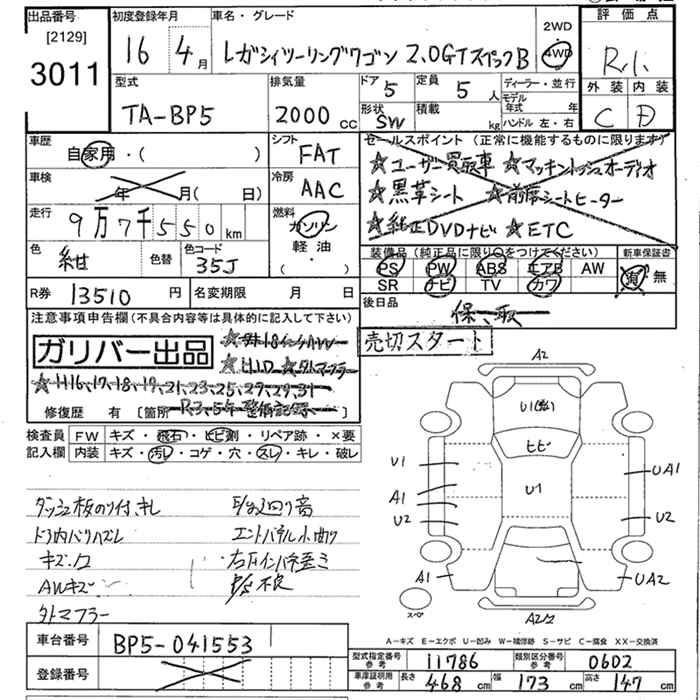 出品番号 [2129] 3011
初度登録年月 16年 4月
車名・グレード レガシィツーリングワゴン 2.0GTスペックB
2WD 4WD
評価点 R.1.
外装 C 内装 D
型式 TA-BP5
排気量 2000 cc
ドア 5 定員 5 人
形状 SW 積載 kg
ディーラー・並行
モデル年式 年
ハンドル 左・右
車歴 自家用・( )
シフト FAT
車検 年 月( 日)
冷房 AAC
走行 9万7千550 km
燃料 ガソリン 軽油 ・( )
色 紺 色替 色コード 35J
セールスポイント (正常に機能するものに限ります)
☆ユーザー買取車 ☆マッキントッシュオーディオ
☆黒革シート ☆前席シートヒーター
☆純正DVDナビ ☆ETC
装備品 (純正品に限り○をつけてください) 新車保証書
PS PW ABS エアB AW 有・無
SR ナビ TV カワ
R券 13510 円 名変期限 月 日
後日品 保、取
注意事項申告欄(不具合内容等は具体的に記入して下さい)
ガリバー出品
☆社外18インチAW
☆HID ☆外マフラー
☆H16,17,18,19,21,23,25,27,29,31
R3,5年 整備記録
修復歴 有 [箇所
売切スタート
検査員記入欄 FW キズ・飛石・ヒビ割・リペア跡・×要
内装 キズ・汚レ・コゲ・穴・スレ・キレ・破レ
ダッシュ板のり付キレ
ドア内バリハズレ
エンドパネル小曲り
キズ、凹
AWキズ
P/S不良
外マフラー
A2
U1
ヒビ
U1 U1 UA1
A1
U2 U2
A1 UA2
スペア
A2凹
A-キズ E-エクボ U-凹み W-補修跡 S-サビ C-腐食 XX-交換済
車台番号 BP5-041553
登録番号
型式指定番号 参考 11786 類別区分番号 参考 0602
車庫証明用 参考 長さ 468 cm 幅 173 cm 高さ 147 cm